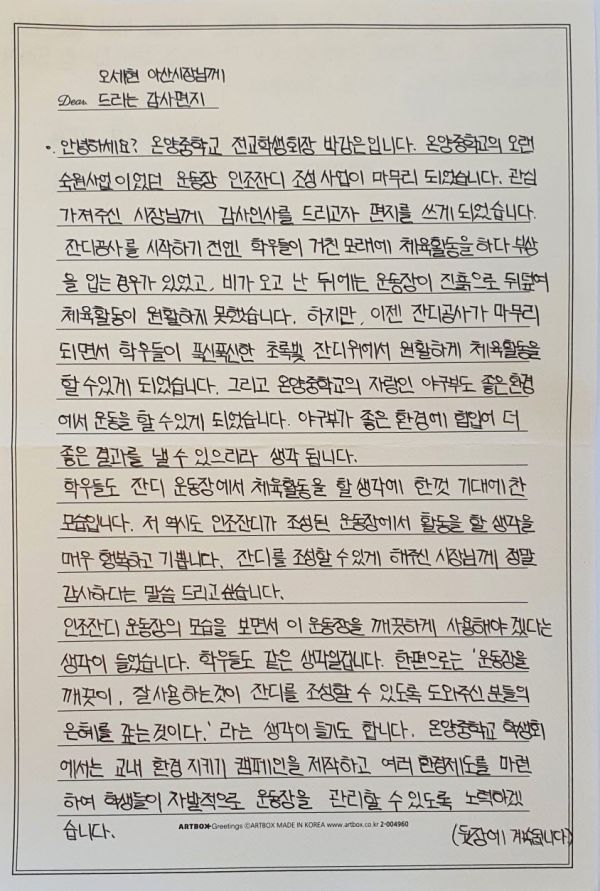 오세현 아산시장님께
Dear. 드리는 감사편지
안녕하세요? 온양중학교 전교학생회장 박감은입니다. 온양중학교의 오랜
숙원사업이었던 운동장 인조잔디 조성사업이 마무리 되었습니다. 관심
가져주신 시장님께 감사인사를 드리고자 편지를 쓰게되었습니다.
잔디공사를 시작하기 전엔 학우들이 거친 모래에 체육활동을 하다 부상
을 입는 경우가 있었고, 비가 오고 난 뒤에는 운동장이 진흙으로 뒤덮여
체육활동이 원활하지 못했습니다. 하지만, 이젠 잔디공사가 마무리
되면서 학우들이 푹신푹신한 초록빛 잔디위에서 원활하게 체육활동을
할 수있게 되었습니다. 그리고 온양중학교의 자랑인 야구부도 좋은환경
에서 운동을 할 수있게 되었습니다. 야구부가 좋은 환경에 힘입어 더
좋은 결과를 낼 수 있으리라 생각 됩니다.
학우들도 잔디 운동장에서 체육활동을 할 생각에 한껏 기대에 찬
모습입니다. 저 역시도 인조잔디가 조성된 운동장에서 활동을 할 생각을
매우 행복하고 기쁩니다. 잔디를 조성할 수있게 해주신 시장님께 정말
감사하다는 말씀 드리고싶습니다.
인조잔디 운동장의 모습을 보면서 이 운동장을 깨끗하게 사용해야 겠다는
생각이 들었습니다. 학우들도 같은 생각일겁니다. 한편으로는 '운동장을
깨끗이, 잘사용하는것이 잔디를 조성할 수 있도록 도와주신 분들의
은혜를 갚는것이다.' 라는 생각이 들기도 합니다. 온양중학교 학생회
에서는 교내 환경 지키기 캠페인을 제작하고 여러 환경제도를 마련
하여 학생들이 자발적으로 운동장을 관리할 수 있도록 노력하겠
습니다.
ARTBOX Greetings ⓒARTBOX MADE IN KOREA www.artbox.co.kr 2-004960
(뒷장에 계속됩니다)